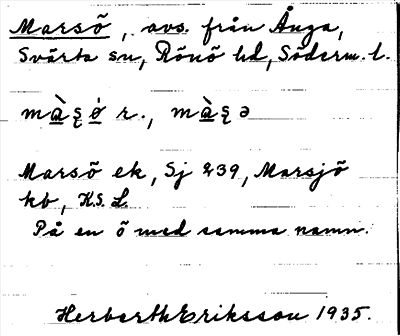 Marsö, avs. från Ånga,
Svärta sn, Rönö hd, Söderm. l.
màʂó r., màʂə
Marsö ek, Sj 239, Marsjö
kb, K.S. L
På en ö med samma namn.
Herberth Eriksson 1935.